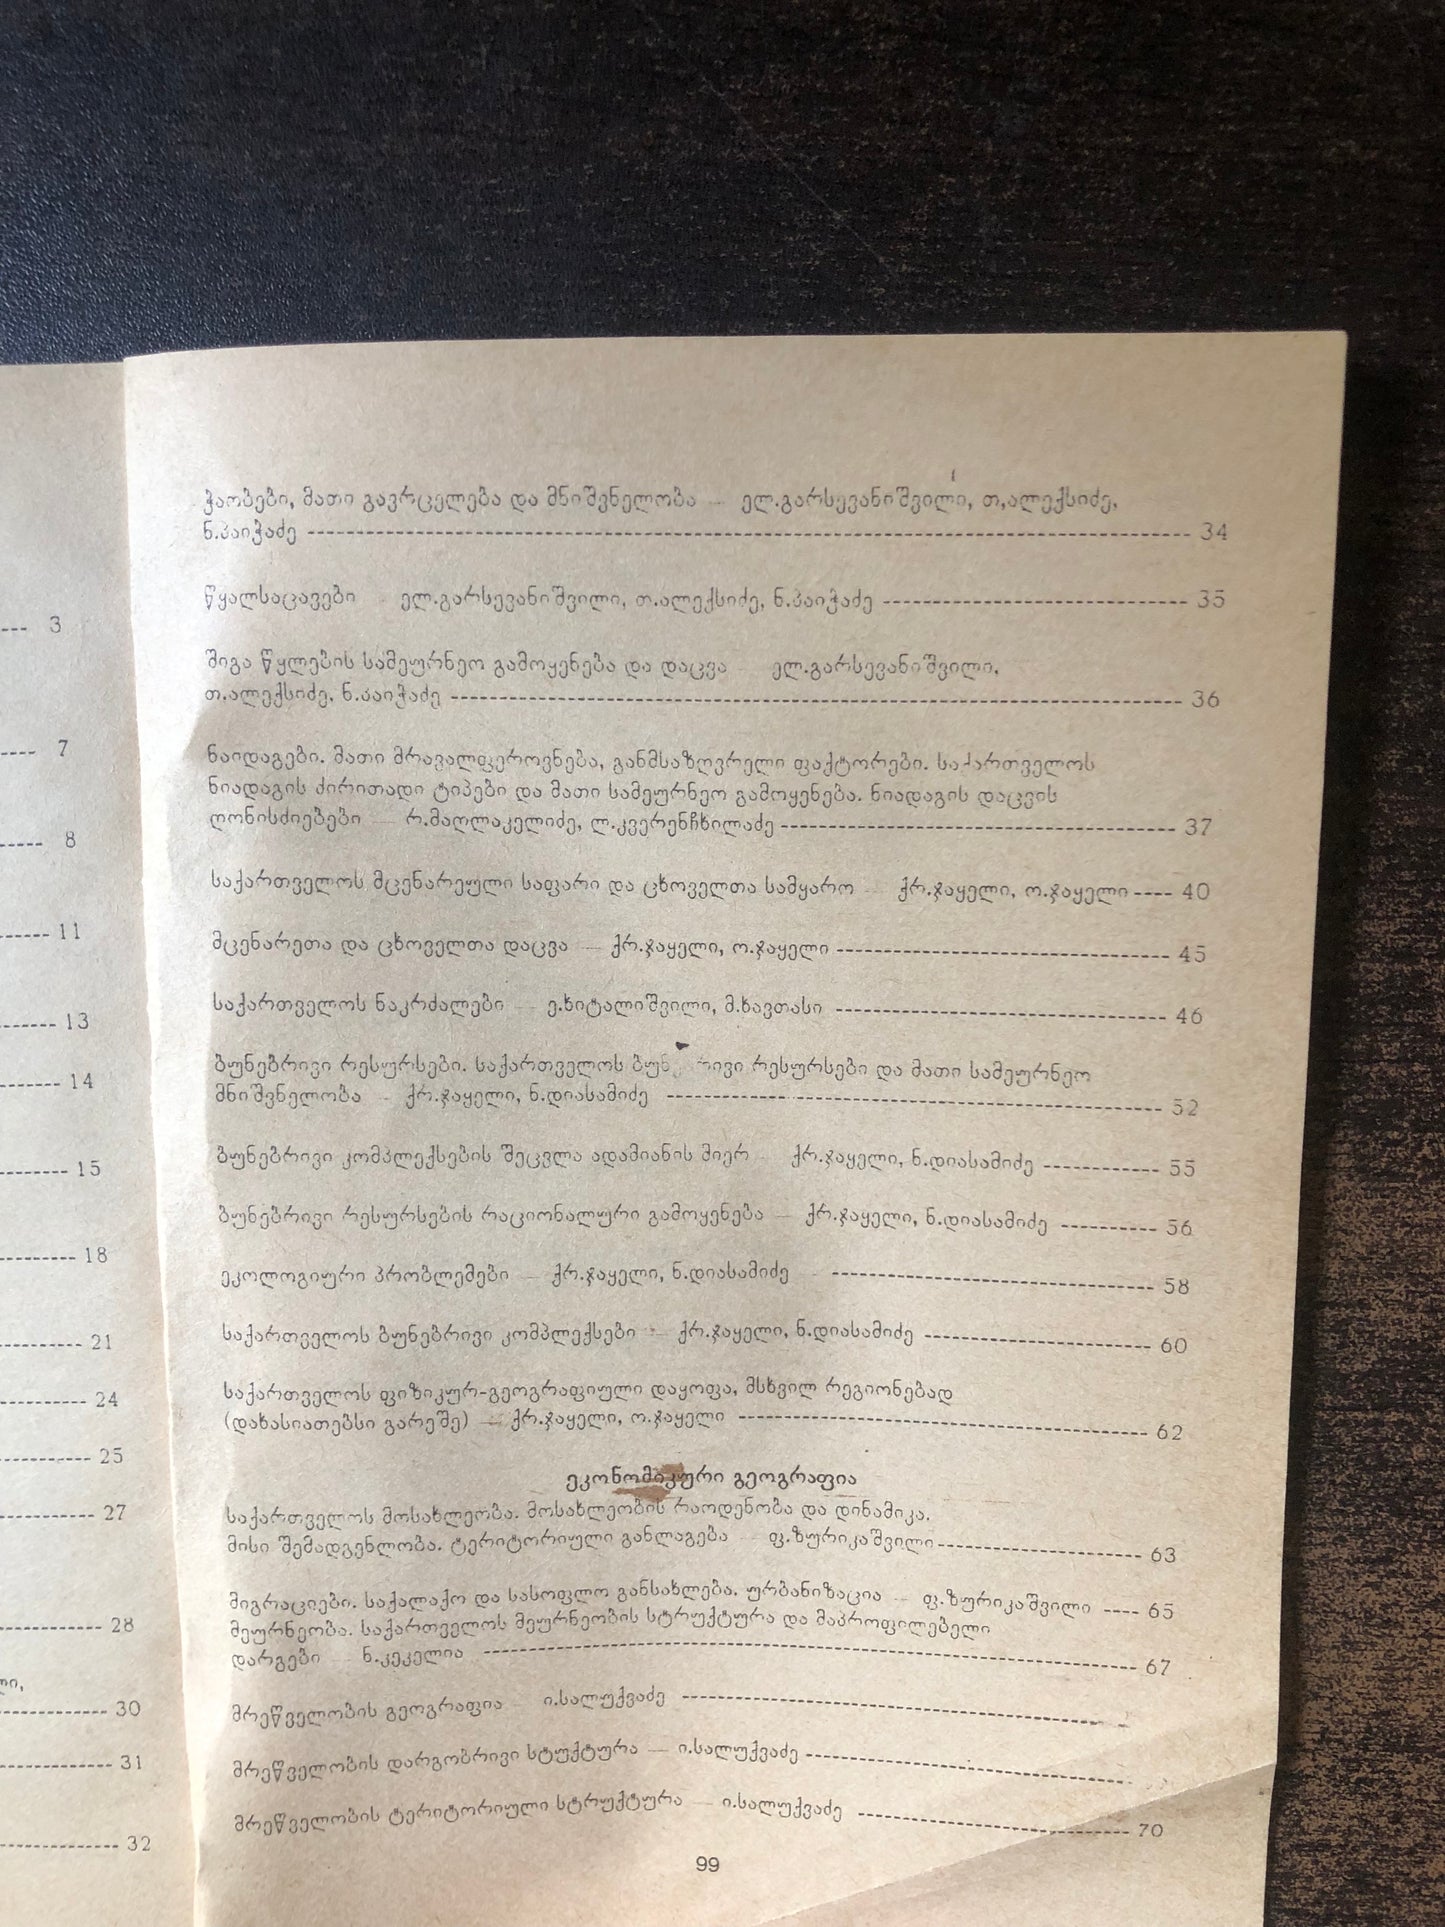 3
7
8
11
13
14
15
18
21
24
25
27
28
30
31
32
ჭაობები, მათი გავრცელება და მნიშვნელობა — ელ.გარსევანიშვილი, თ,ალექსიძე,
ნ.პაიჭაძე ---- 34
წყალსაცავები — ელ.გარსევანიშვილი, თ.ალექსიძე, ნ.პაიჭაძე ---- 35
შიგა წყლების სამეურნეო გამოყენება და დაცვა — ელ.გარსევანიშვილი,
თ.ალექსიძე, ნ.პაიჭაძე ---- 36
ნაიდაგები. მათი მრავალფეროვნება, განმსაზღვრელი ფაქტორები. საქართველოს
ნიადაგის ძირითადი ტიპები და მათი სამეურნეო გამოყენება. ნიადაგის დაცვის
ღონისძიებები — რ.მაღლაკელიძე, ლ.კვერენჩხილაძე ---- 37
საქართველოს მცენარეული საფარი და ცხოველთა სამყარო — ქრ.ჯაყელი, ო.ჯაყელი ---- 40
მცენარეთა და ცხოველთა დაცვა — ქრ.ჯაყელი, ო.ჯაყელი ---- 45
საქართველოს ნაკრძალები — ე.ხიტალიშვილი, მ.ხავთასი ---- 46
ბუნებრივი რესურსები. საქართველოს ბუნებრივი რესურსები და მათი სამეურნეო
მნიშვნელობა — ქრ.ჯაყელი, ნ.დიასამიძე ---- 52
ბუნებრივი კომპლექსების შეცვლა ადამიანის მიერ — ქრ.ჯაყელი, ნ.დიასამიძე ---- 55
ბუნებრივი რესურსების რაციონალური გამოყენება — ქრ.ჯაყელი, ნ.დიასამიძე ---- 56
ეკოლოგიური პრობლემები — ქრ.ჯაყელი, ნ.დიასამიძე ---- 58
საქართველოს ბუნებრივი კომპლექსები — ქრ.ჯაყელი, ნ.დიასამიძე ---- 60
საქართველოს ფიზიკურ-გეოგრაფიული დაყოფა, მსხვილ რეგიონებად
(დახასიათებსი გარეშე) — ქრ.ჯაყელი, ო.ჯაყელი ---- 62
ეკონომიკური გეოგრაფია
საქართველოს მოსახლეობა. მოსახლეობის რაოდენობა და დინამიკა.
მისი შემადგენლობა. ტერიტორიული განლაგება — ფ.ზურიკაშვილი ---- 63
მიგრაციები. საქალაქო და სასოფლო განსახლება. ურბანიზაცია — ფ.ზურიკაშვილი ---- 65
მეურნეობა. საქართველოს მეურნეობის სტრუქტურა და მაპროფილებელი
დარგები — ნ.კეკელია ---- 67
მრეწველობის გეოგრაფია — ი.სალუქვაძე ----
მრეწველობის დარგობრივი სტუქტურა — ი.სალუქვაძე ----
მრეწველობის ტერიტორიული სტრუქტურა — ი.სალუქვაძე ---- 70
99